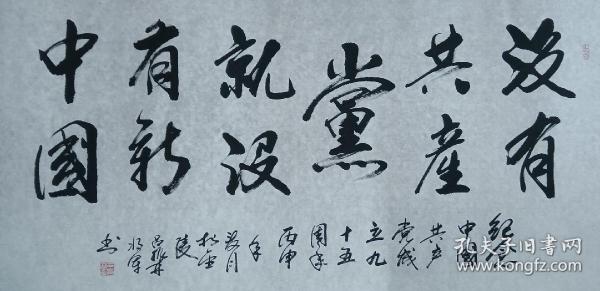 没有
共產
黨
就没
有新
中國
纪念
中國
共产
党成
立九
十五
周年
丙申
年
於金
陵
书
孔夫子旧书网
www.kongfz.com